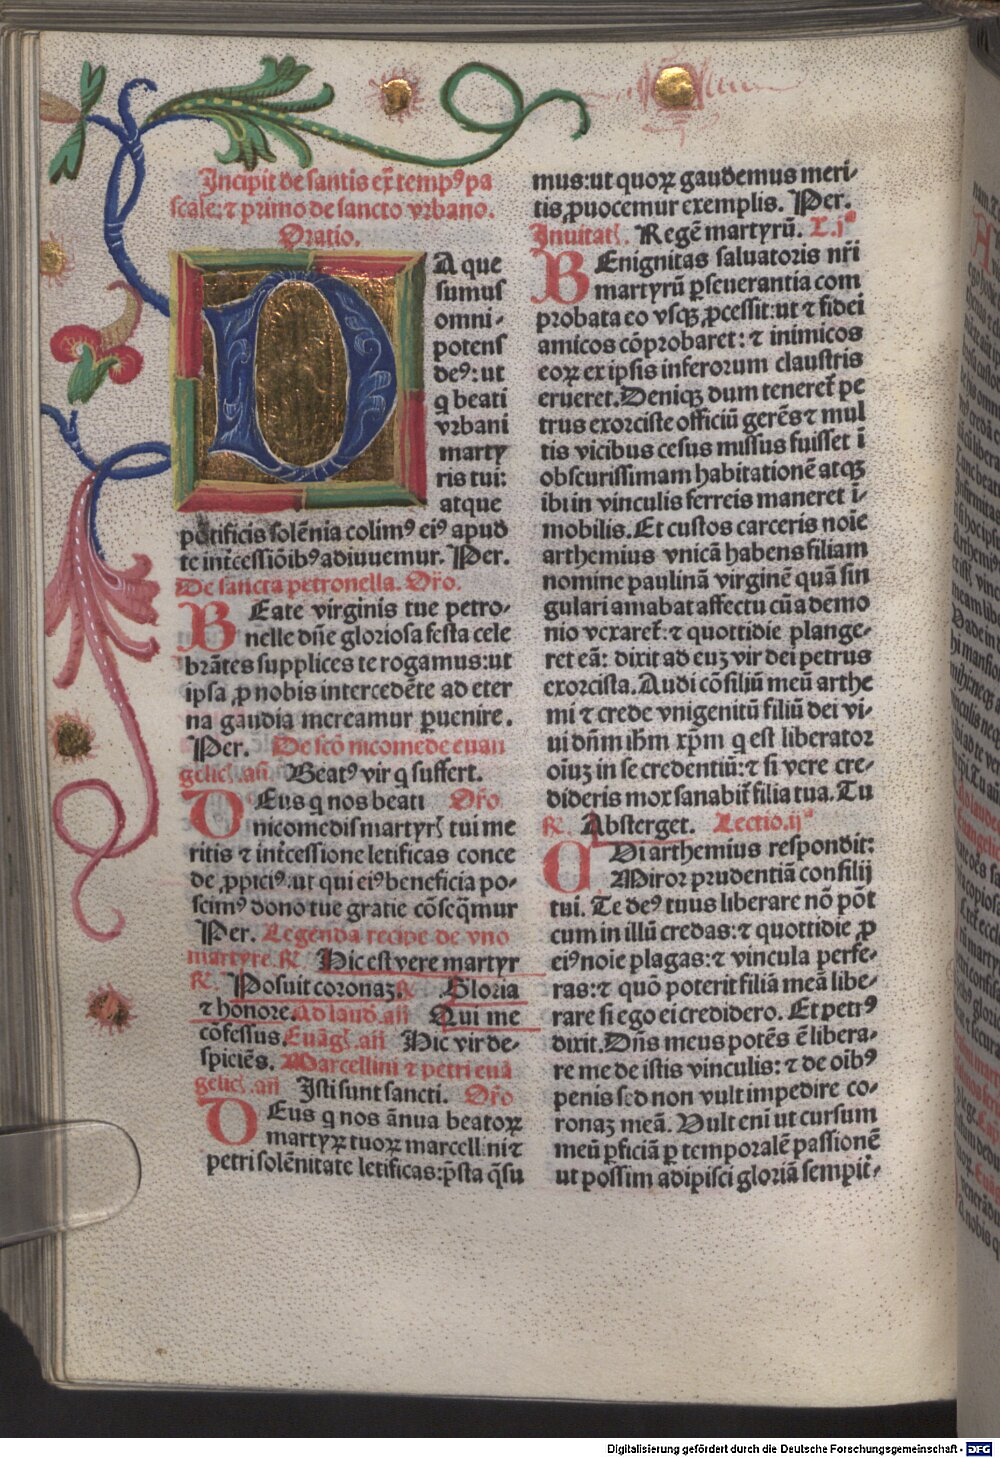 Incipit de sanctis extra tempꝰ pa
scale: ⁊ primo de sancto vrbano.
Oratio.
DA que
sumus
omni⸗
potens
deꝰ: ut
q̇ beati
vrbani
marty
ris tui:
atque
pōtificis solēnia colimꝰ eiꝰ apud
te int̄cessiōibꝰ adiuuemur. Per.
De sancta petronella. Orō.
BEate virginis tue petro⸗
nelle dn̄e gloriosa festa cele
brātes supplices te rogamus: ut
ipsa ꝓ nobis intercedēte ad eter
na gaudia mereamur ꝑuenire.
Per. De scō nicomede euan
gelic̄. añ Beatꝰ vir q̇ suffert.
DEus q̇ nos beati Orō
nicomedis martyrꝭ tui me
ritis ⁊ int̄cessione letificas conce
de ꝓpiciꝰ: ut qui eiꝰ beneficia po⸗
scimꝰ dono tue gratie cōseq̄mur
Per. Legenda recipe de vno
martyre. ℟ Hic est vere martyr
℟ Posuit coronaꝫ. ℟ Gloria
⁊ honore. Ad laud̄. añ Qui me
cōfessus. Euāgl̄. añ Hic vir de⸗
spiciēs. Marcellini ⁊ petri euā
gelic̄. añ Isti sunt sancti. Orō
DEus q̇ nos ānua beatoꝝ
martyꝝ tuoꝝ marcellini ⁊
petri solēnitate letificas: p̄sta q̄su
mus: ut quoꝝ gaudemus meri⸗
tis ꝓuocemur exemplis. Per.
Inuitat̄. Regē martyrū. L. jᵃ
BEnignitas saluatoris nr̄i
martyrū ꝑseuerantia com
probata eo vsqꝫ ꝓcessit: ut ⁊ fidei
amicos cōprobaret: ⁊ inimicos
eoꝝ ex ipsis inferorum claustris
erueret. Deniqꝫ dum teneret̄ pe
trus exorciste officiū gerēs ⁊ mul
tis vicibus cesus missus fuisset ī
obscurissimam habitationē atqꝫ
ibi in vinculis ferreis maneret ī⸗
mobilis. Et custos carceris noīe
arthemius vnicā habens filiam
nomine paulinā virginē quā sin
gulari amabat affectu cū a demo
nio vexaret̄: ⁊ quottidie plange⸗
ret eā: dixit ad euꝫ vir dei petrus
exorcista. Audi cōsiliū meū arthe
mi ⁊ crede vnigenitū filiū dei vi⸗
ui dn̄m ihm̄ xp̄m q̇ est liberator
oīuꝫ in se credentiū: ⁊ si vere cre⸗
dideris mox sanabit̄ filia tua. Tu
℟. Absterget. Lectio. ijᵃ
CUi arthemius respondit:
Miror prudentiā consilij
tui. Te deꝰ tuus liberare nō pōt
cum in illū credas: ⁊ quottidie ꝓ
eiꝰ noīe plagas: ⁊ vincula perfe⸗
ras: ⁊ quō poterit filiā meā libe⸗
rare si ego ei credidero. Et petrꝰ
dixit. Dn̄s meus potēs ē libera⸗
re me de istis vinculis: ⁊ de oībꝰ
penis sed non vult impedire co⸗
ronaꝫ meā. Vult eni ut cursum
meū ꝑficiā ꝑ temporalē passionē
ut possim adipisci gloriā sempit̄⸗
Digitalisierung gefördert durch die Deutsche Forschungsgemeinschaft - DFG